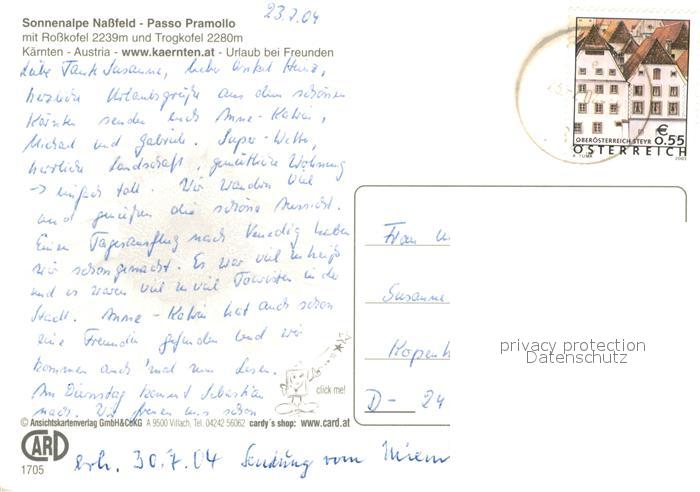 23.7.04
Sonnenalpe Naßfeld - Passo Pramollo
mit Roßkofel 2239m und Trogkofel 2280m
Kärnten - Austria - www.kaernten.at - Urlaub bei Freunden
Liebe Tante Susanne, lieber Onkel Heinz,
herzliche Urlaubsgrüße aus dem schönen
Kärnten senden euch Anne-Katrin,
Michael und Gabriele. Super-Wetter,
herrliche Landschaft, gemütliche Wohnung
→ einfach toll. Wir wandern viel
und genießen die schöne Aussicht.
Einen Tagesausflug nach Venedig haben
wir schon gemacht. Es war viel zu heiß
und es waren viel zu viele Touristen in der
Stadt. Anne-Katrin hat auch schon
eine Freundin gefunden und wir
kommen auch 'mal zum Lesen.
Am Dienstag kommt Sebastian
nach. Wir freuen uns schon
click me!
© Ansichtskartenverlag GmbH&CoKG A 9500 Villach, Tel. 04242 56062 cardy's shop: www.card.at
CARD
1705
erh. 30.7.04 Sendung vom
€ 0.55
OBERÖSTERREICH STEYR
ÖSTERREICH
A. TUMA 2003
Frau
Susanne
Kopenh
D- 24
privacy protection
Datenschutz